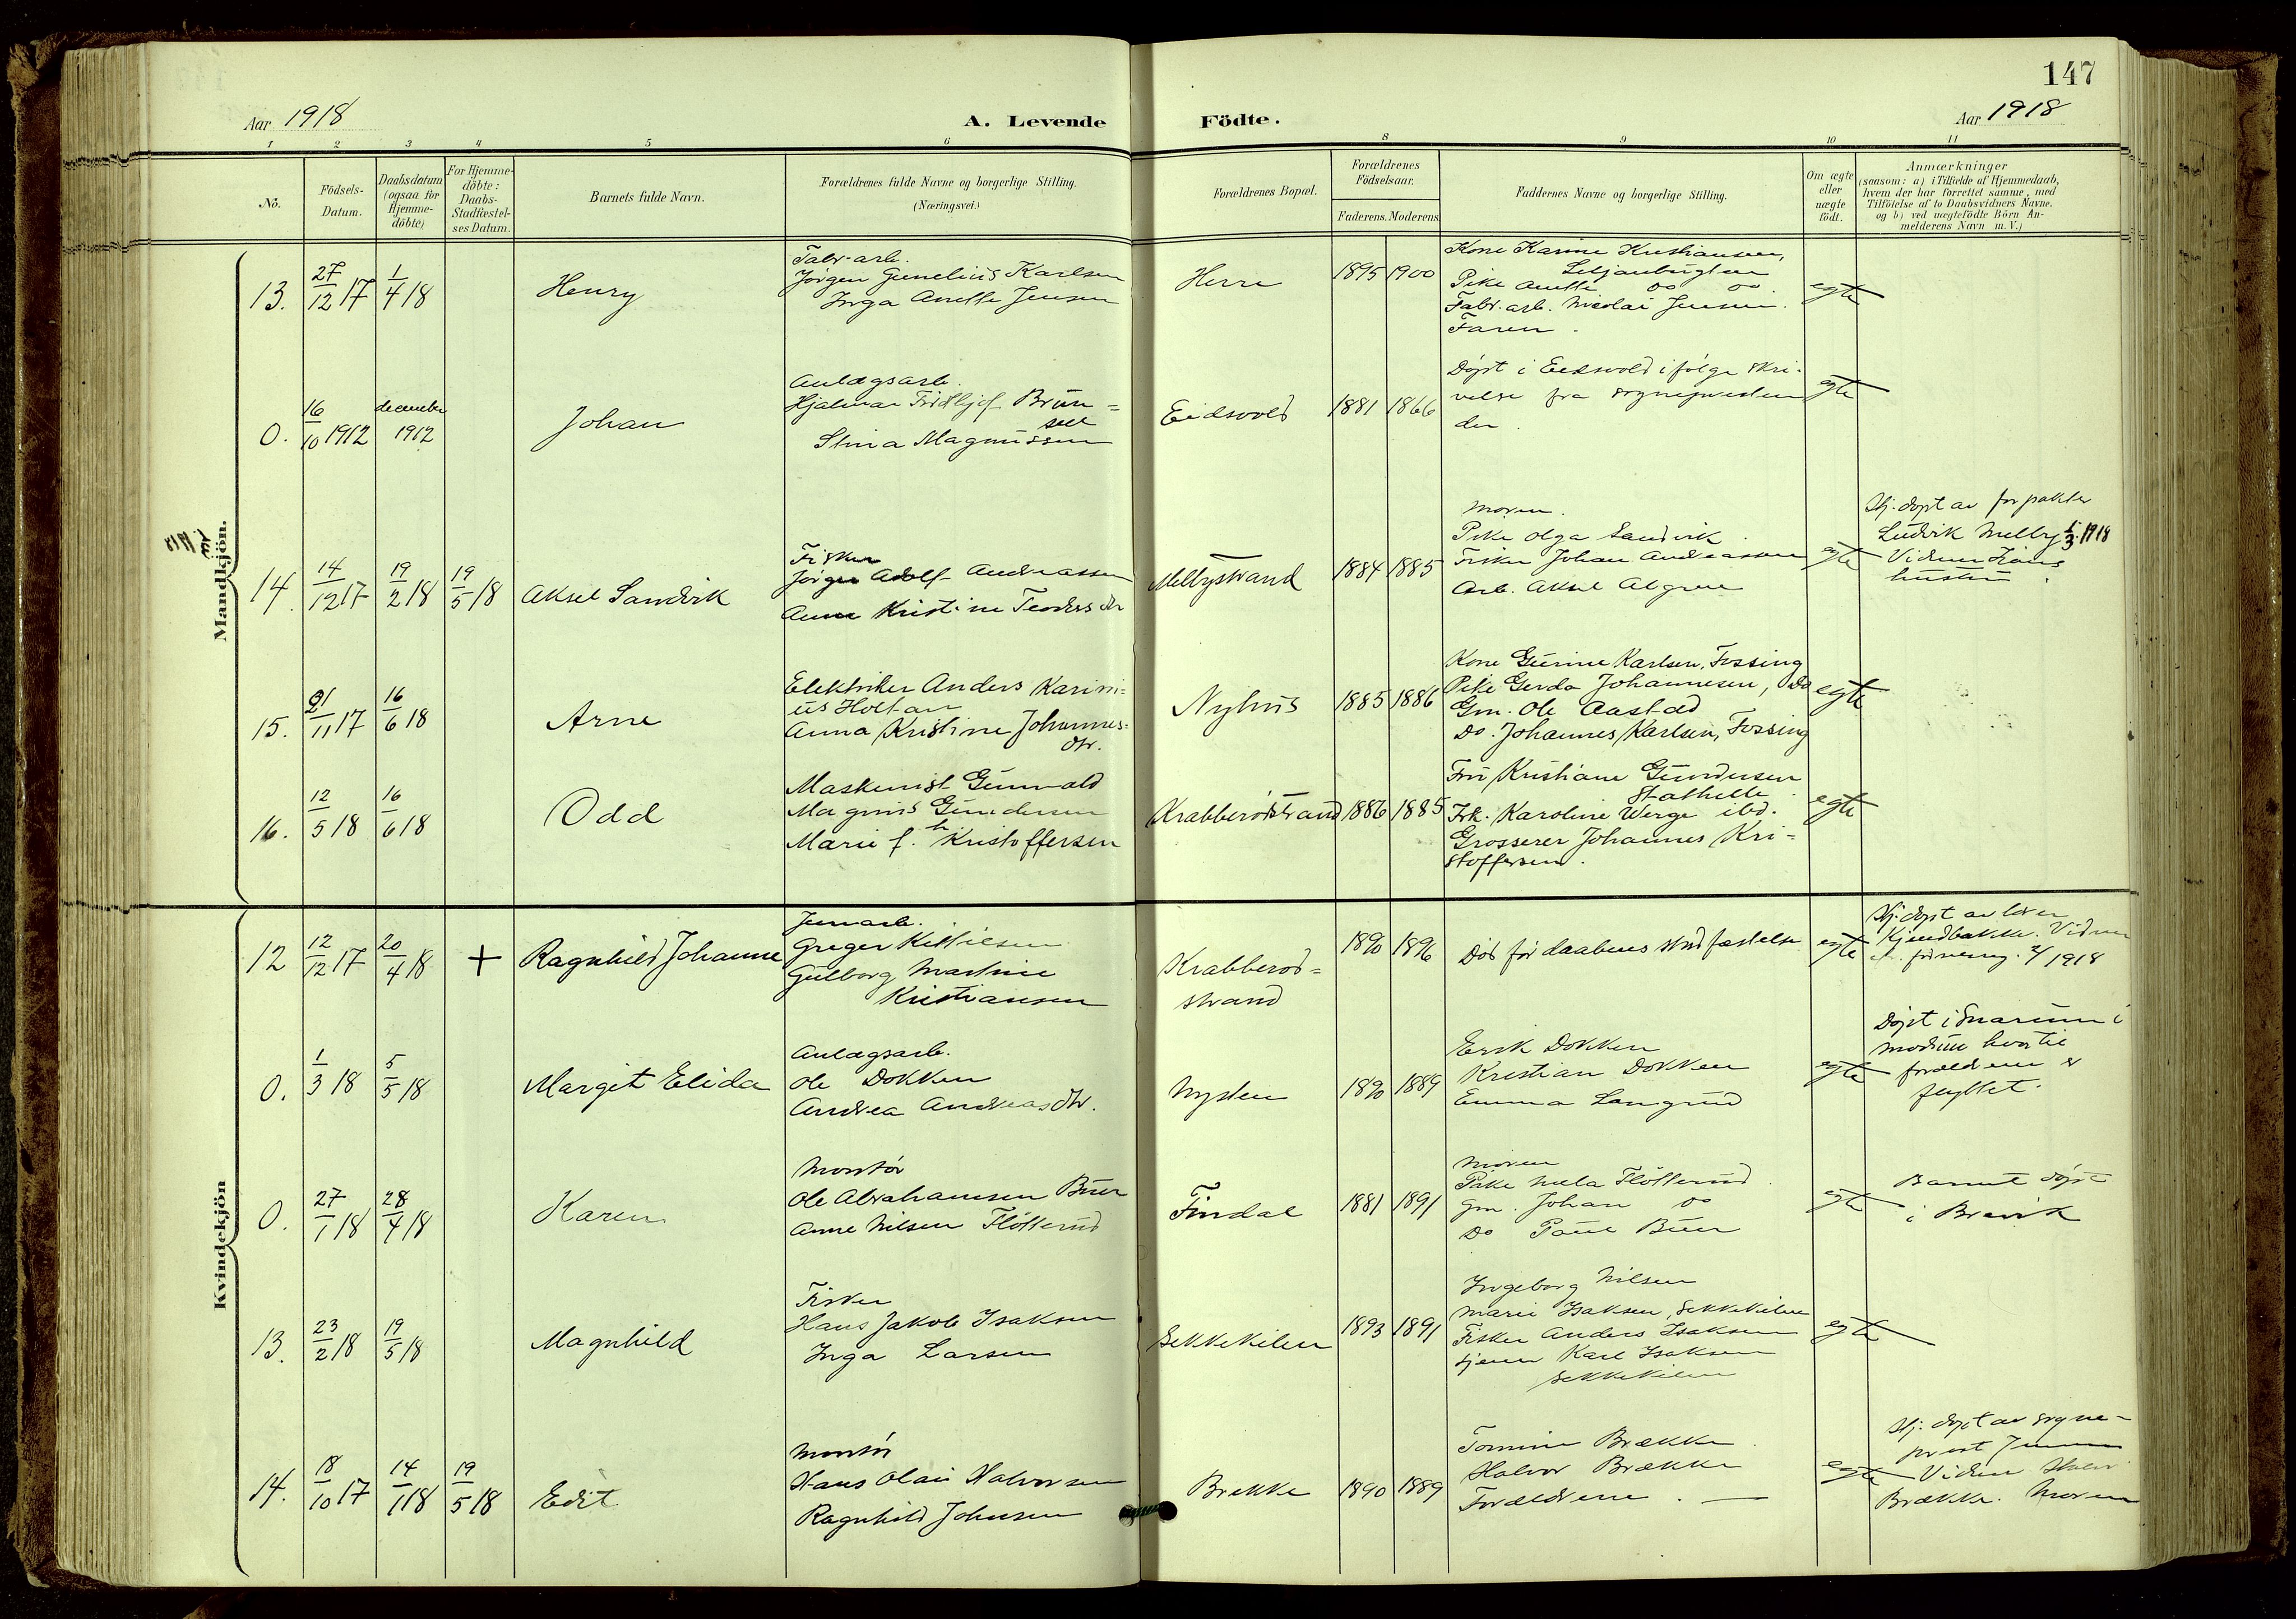 147
Aar 1918
A. Levende Födte.
Aar 1918
1 2 3 4 5 6 8 9 10 11
No.
Födsels-
Datum.
Daabsdatum
(ogsaa for
Hjemme-
döbte)
For Hjemme-
döbte:
Daabs-
Stadfæstel-
ses Datum.
Barnets fulde Navn.
Forældrenes fulde Navne og borgerlige Stilling.
(Næringsvei.)
Forældrenes Bopæl.
Forældrenes
Födselsaar.
Faderens. Moderens
Faddernes Navne og borgerlige Stilling.
Om ægte
eller
uægte
födt.
Anmærkninger
(saasom: a) i Tilfælde af Hjemmedaab,
hvem der har forrettet samme, med
Tilföielse af to Daabsvidners Navne.
og b) ved uægtefödte Börn An-
melderens Navn m.V.)
Mandkjön.
13. 27/12 17 1/4 18
Henry
Fabr-arb.
Jörgen Gunelius Karlsen
Inga Anette Jensen
Herre
1895 1900
Kone Karine Kristiansen,
Pike Anette do do.
Fabr. arb. Nicolai Jensen.
Faren.
egte
0. 16/10 1912 december
1912
Johan
Anlægsarb.
Hjalmar Fridtjof Brun=
sell
Stina Magnussen
Eidsvold
1881 1866
Døpt i Eidsvold ifølge skri-
velse fra sognepresten
der.
egte
14. 14/12 17 19/2 18 19/5 18
Aksel Sandvik
Fisker
Jörgen Adolf Andreassen
Anne Kristine Teodersdtr
Melbystrand
1884 1885
Moren.
Pike Olga Sandvik
Fisker Johan Andreassen
Arb. Aksel Algren
egte
Hj. døpt av forpakter
Ludvik Melby 1/3 1918
Vidner Hans
hustru.
15. 21/11 17 16/6 18
Arne
Elektriker Anders Karini=
us Holtan
Anna Kristine Johannes=
dtr.
Nyhus
1885 1886
Kone Gurine Karlsen, Fossing
Pike Gerda Johannesen, Do
Gm. Ole Aastad
Do. Johannes Karlsen, Fossing
egte
16. 12/5 18 16/6 18
Odd
Maskinist Gunvald
Magnus Gundersen
Marie f. Kristoffersen
Krabberødstrand
1886 1885
Fru Kristiane Gundersen
Stathelle.
Frk. Karoline Werge ibd.
Grosserer Johannes Kri=
stoffersen.
egte
Kvindekjön
12 12/12 17 20/4 18 +
Ragnhild Johanne
Jernarb.
Greger Kittilsen
Gulborg Martine
Kristiansen
Krabberød=
strand
1890 1896
Død før daabens stadfæstelse
egte
Hj. døpt av lærer
Kjendbakke. Vidner
1918
0. 1/3 18 5/5 18
Margit Elida
Anlægsarb.
Ole Dokken
Andrea Andreasdtr.
Nysten
1890 1889
Erik Dokken
Kristian Dokken
Emma Langrud
egte
Døpt i Snarum i
Modum hvortil
forældrene er
flyttet.
0. 27/1 18 28/4 18
Karen
Montør
Ole Abrahamsen Buer
Anne Nilsen Fløtterud
Findal
1881 1891
Moren
Pike Mela Fløtterud
Gm. Johan do
Do Paul Buer
egte
Barnet døpt
i Brevik
13. 23/2 18 19/5 18
Magnhild
Fisker
Hans Jakob Isaksen
Inga Larsen
Sekkekilen
1893 1891
Ingeborg Nilsen
Marie Isaksen, Sekkekilen
Fisker Anders Isaksen
Karl Isaksen
Sekkekilen
egte
14. 18/10 17 14/1 18 19/5 18
Edit
Montør
Hans Olai Halvorsen
Ragnhild Johnsen
Brekke
1890 1889
Tomine Brække
Halvor Brække
Forældrene.
egte
Hj. døpt av sogne-
prest Jensen
Vidner Halvor
Brække. Moren